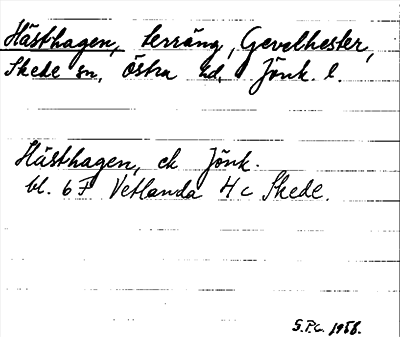 Hästhagen, terräng, Gevelhester,
Skede sn, Östra hd, Jönk. l.
Hästhagen, ek Jönk.
bl. 6 F Vetlanda 4 c Skede.
1958.